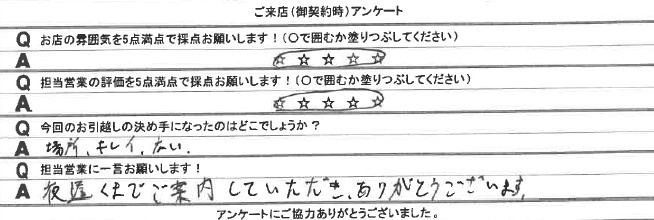 ご来店(御契約時)アンケート
Q お店の雰囲気を5点満点で採点お願いします！(〇で囲むか塗りつぶしてください)
A ☆ ☆ ☆ ☆ ☆
Q 担当営業の評価を5点満点で採点お願いします！(〇で囲むか塗りつぶしてください)
A ☆ ☆ ☆ ☆ ☆
Q 今回のお引越しの決め手になったのはどこでしょうか？
A 場所、キレイ、
Q 担当営業に一言お願いします！
A 夜遅くまでご案内していただき、ありがとうございます。
アンケートにご協力ありがとうございました。